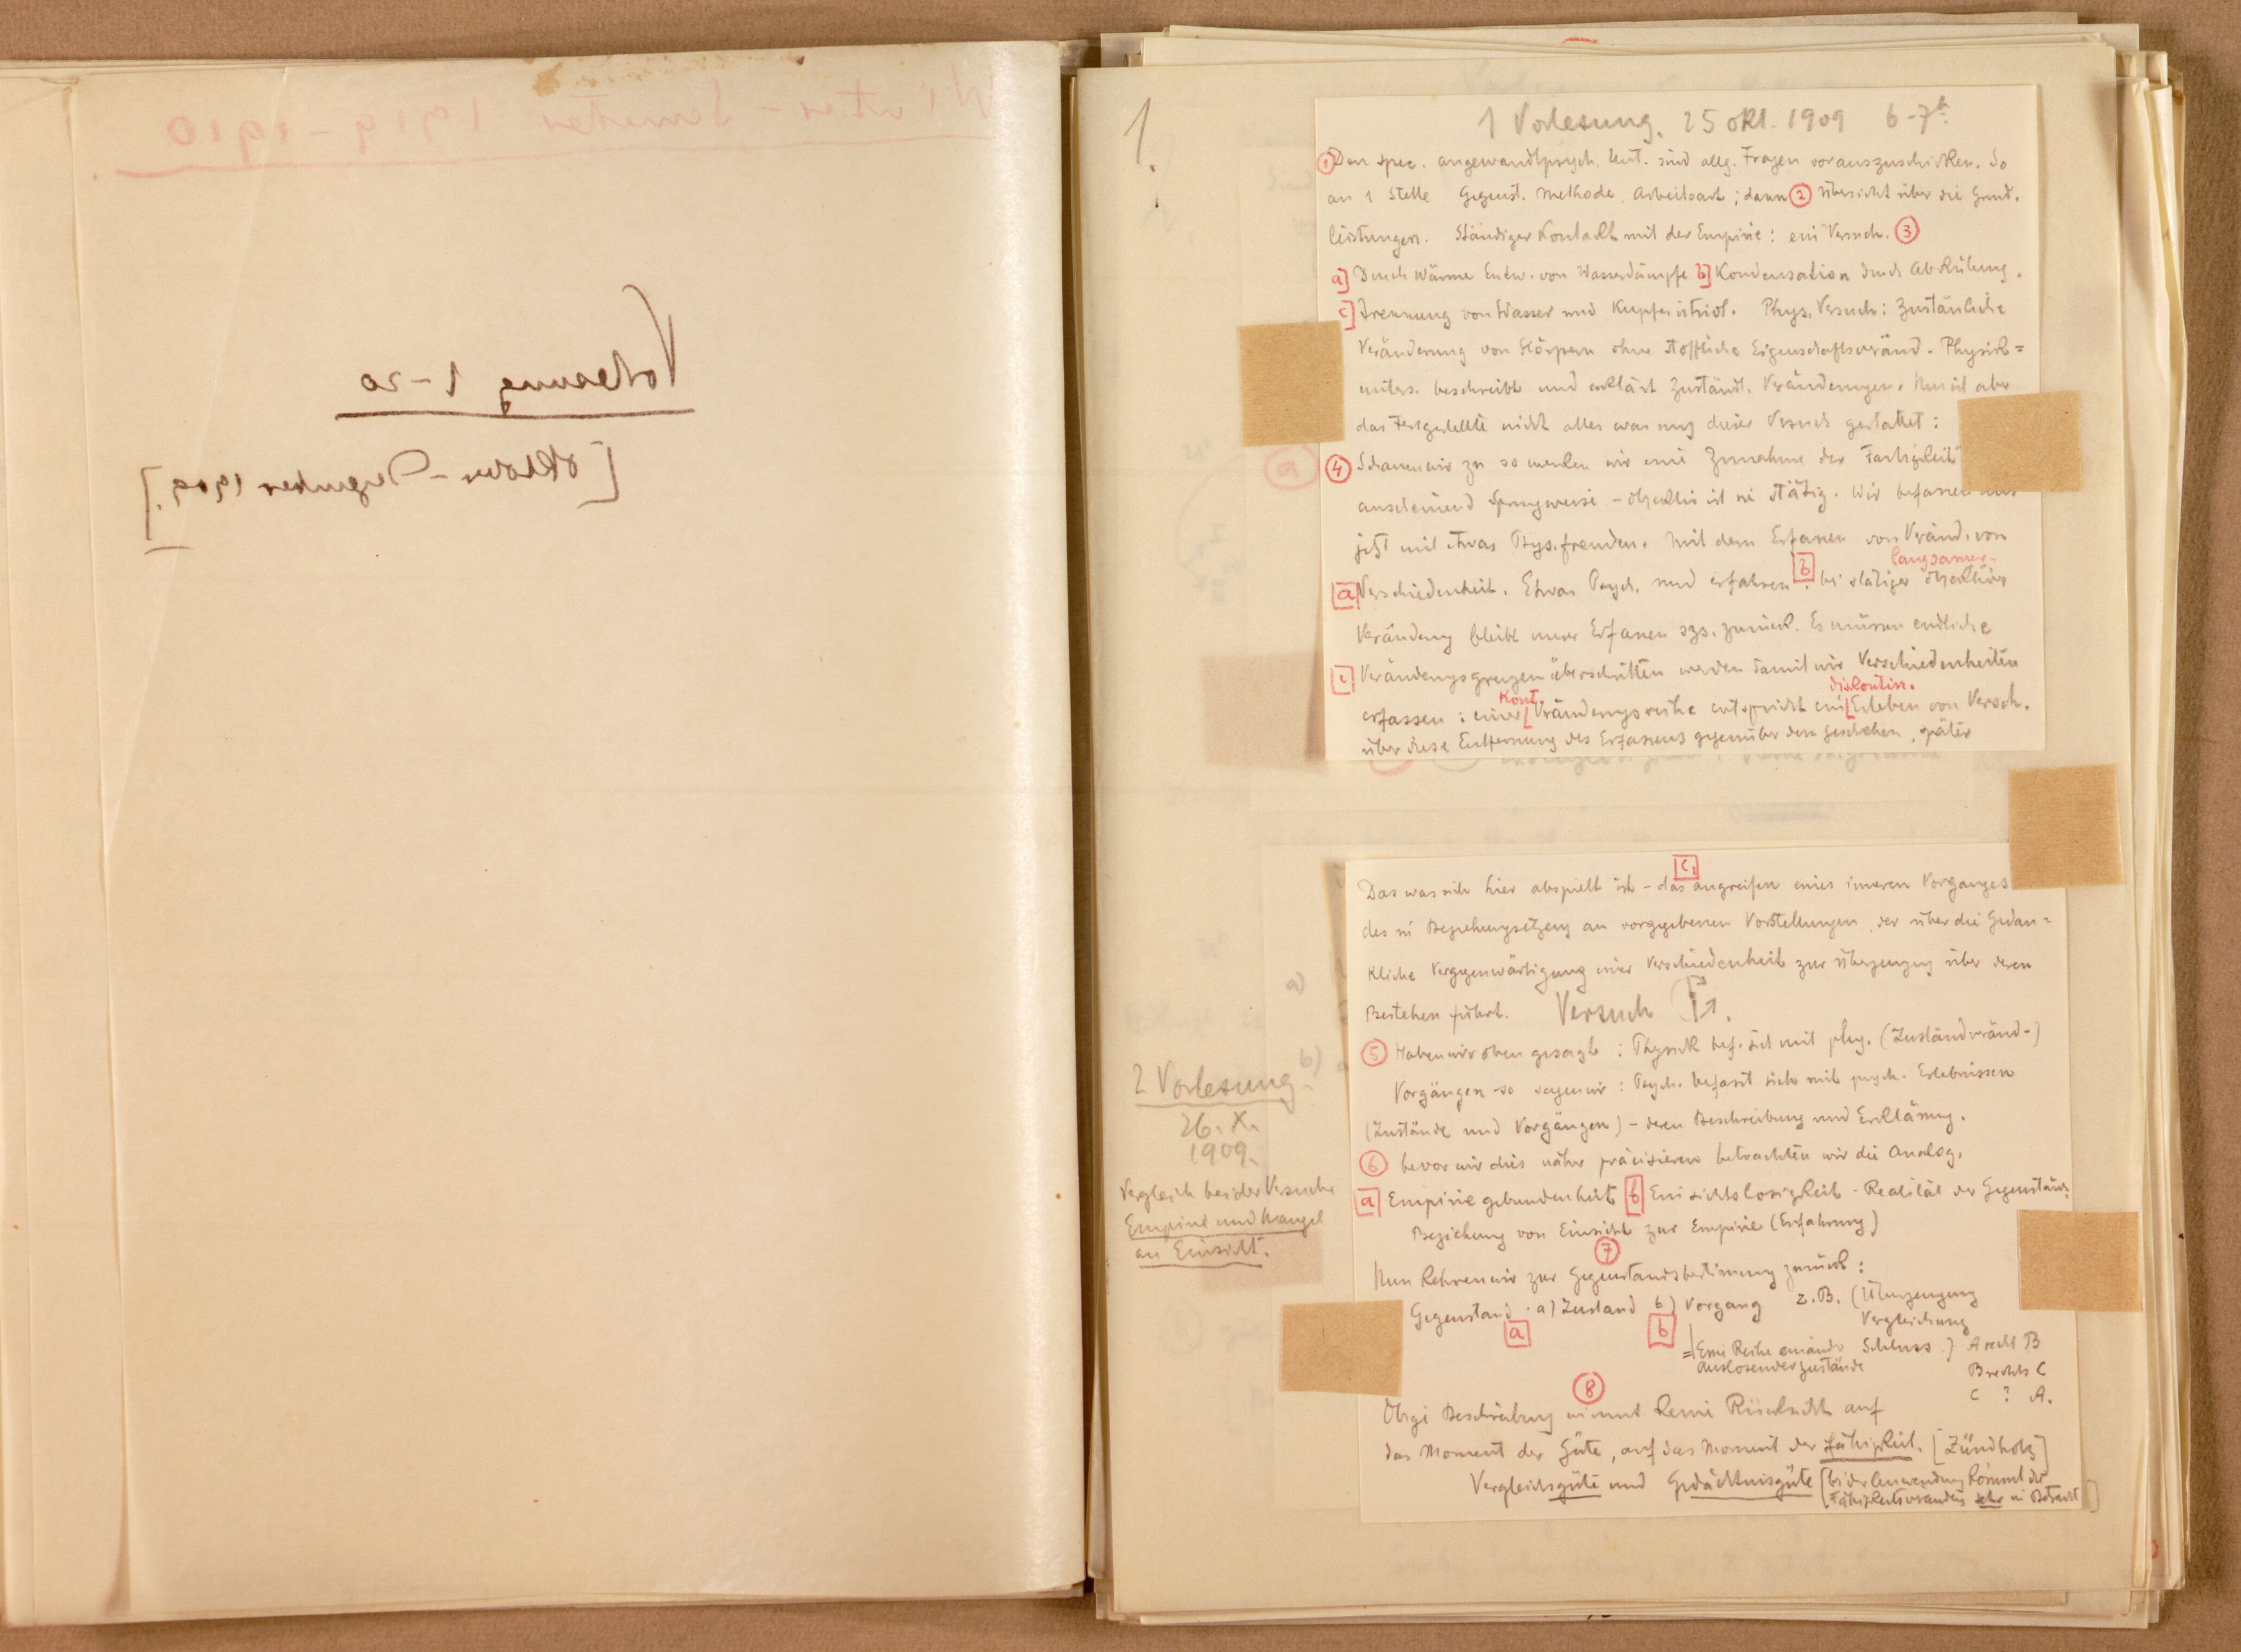 Winter-Semester 1919-1910
Vorlesung 1-20
[Oktober - Dezember 1909.]
1.
1 Vorlesung. 25 Okt. 1909 6-7h
① Den spec. angewandtpsych. Unt. sind allg. Fragen vorauszuschicken. So
an 1 Stelle Gegenst. Methode Arbeitsart; dann ② Übersicht über die Grund.
leistungen. Ständiger Kontakt mit der Empirie: ein Versuch. ③
a] Durch Wärme Entw. von Wasserdämpfe b] Kondensation durch Abkühlung.
c] Trennung von Wasser und Kupfervitriol. Phys. Versuch: Zuständliche
Veränderung von Körpern ohne stoffliche Eigenschaftsveränd. Physik=
unters. beschreibt und erklärt Zuständl. Veränderungen. Nun ist aber
das Festgestellte nicht alles was uns dieser Versuch gestattet:
④ Schauen wir zu so merken wir eine Zunahme der Farbigkeit
anscheinend Sprungweise - objektiv ist sie stätig. Wir befassen uns
jetzt mit etwas Phys. fremden. Mit dem Erfassen von Veränd. von
langsamer
a Verschiedenheit. Etwas Psych. und erfahren: b bei stätiger objektiver
Veränderung bleibt unser Erfassen szs. zurück. Es müssen endliche
c Veränderungsgrenzen überschritten werden damit wir Verschiedenheiten
Kont. diskontin.
erfassen: einer Veränderungsreihe entspricht ein Erleben von Versch.
über diese Entfernung des Erfassens gegenüber dem Geschehen, später
c,
Das was sich hier abspielt ist - das angreifen eines inneren Vorganges
des in Beziehungsetzung an vorgegebenen Vorstellungen, der über die Gedan=
kliche Vergegenwärtigung einer Verschiedenheit zur Überzeugung über deren
Bestehen führt. Versuch
⑤ Haben wir oben gesagt: Physik bef. sich mit phy. (Zuständveränd-)
Vorgängen so sagen wir: Psych. befasst sich mit psych. Erlebnissen
(Zustände und Vorgängen) - deren Beschreibung und Erklärung.
⑥ bevor wir dies näher präcisieren betrachten wir die Analog.
a Empiriegebundenheit b Einsichtslosigkeit - Realität der Gegenständ.
Beziehung von Einsicht zur Empirie (Erfahrung)
⑦
Nun kehren wir zur Gegenstandsbestimmung zurück:
Gegenstand. a) Zustand b) Vorgang z.B. (Überzeugung
Vergleichung
a b
= Eine Reihe einander Schluss) A rechts B
auslösender Zustände B rechts C
C ? A.
⑧
Obige Beschreibung nimmt keine Rücksicht auf
das Moment der Güte, auf das Moment der Fähigkeit. [Zündholz]
Vergleichsgüte und Gedächtnisgüte [bei der Anwendung kommt die
Fähigkeitsveränderung sehr in Betracht]
2 Vorlesung
26. X.
1909.
Vergleich beider Versuche
Empirie und Mangel
an Einsicht.